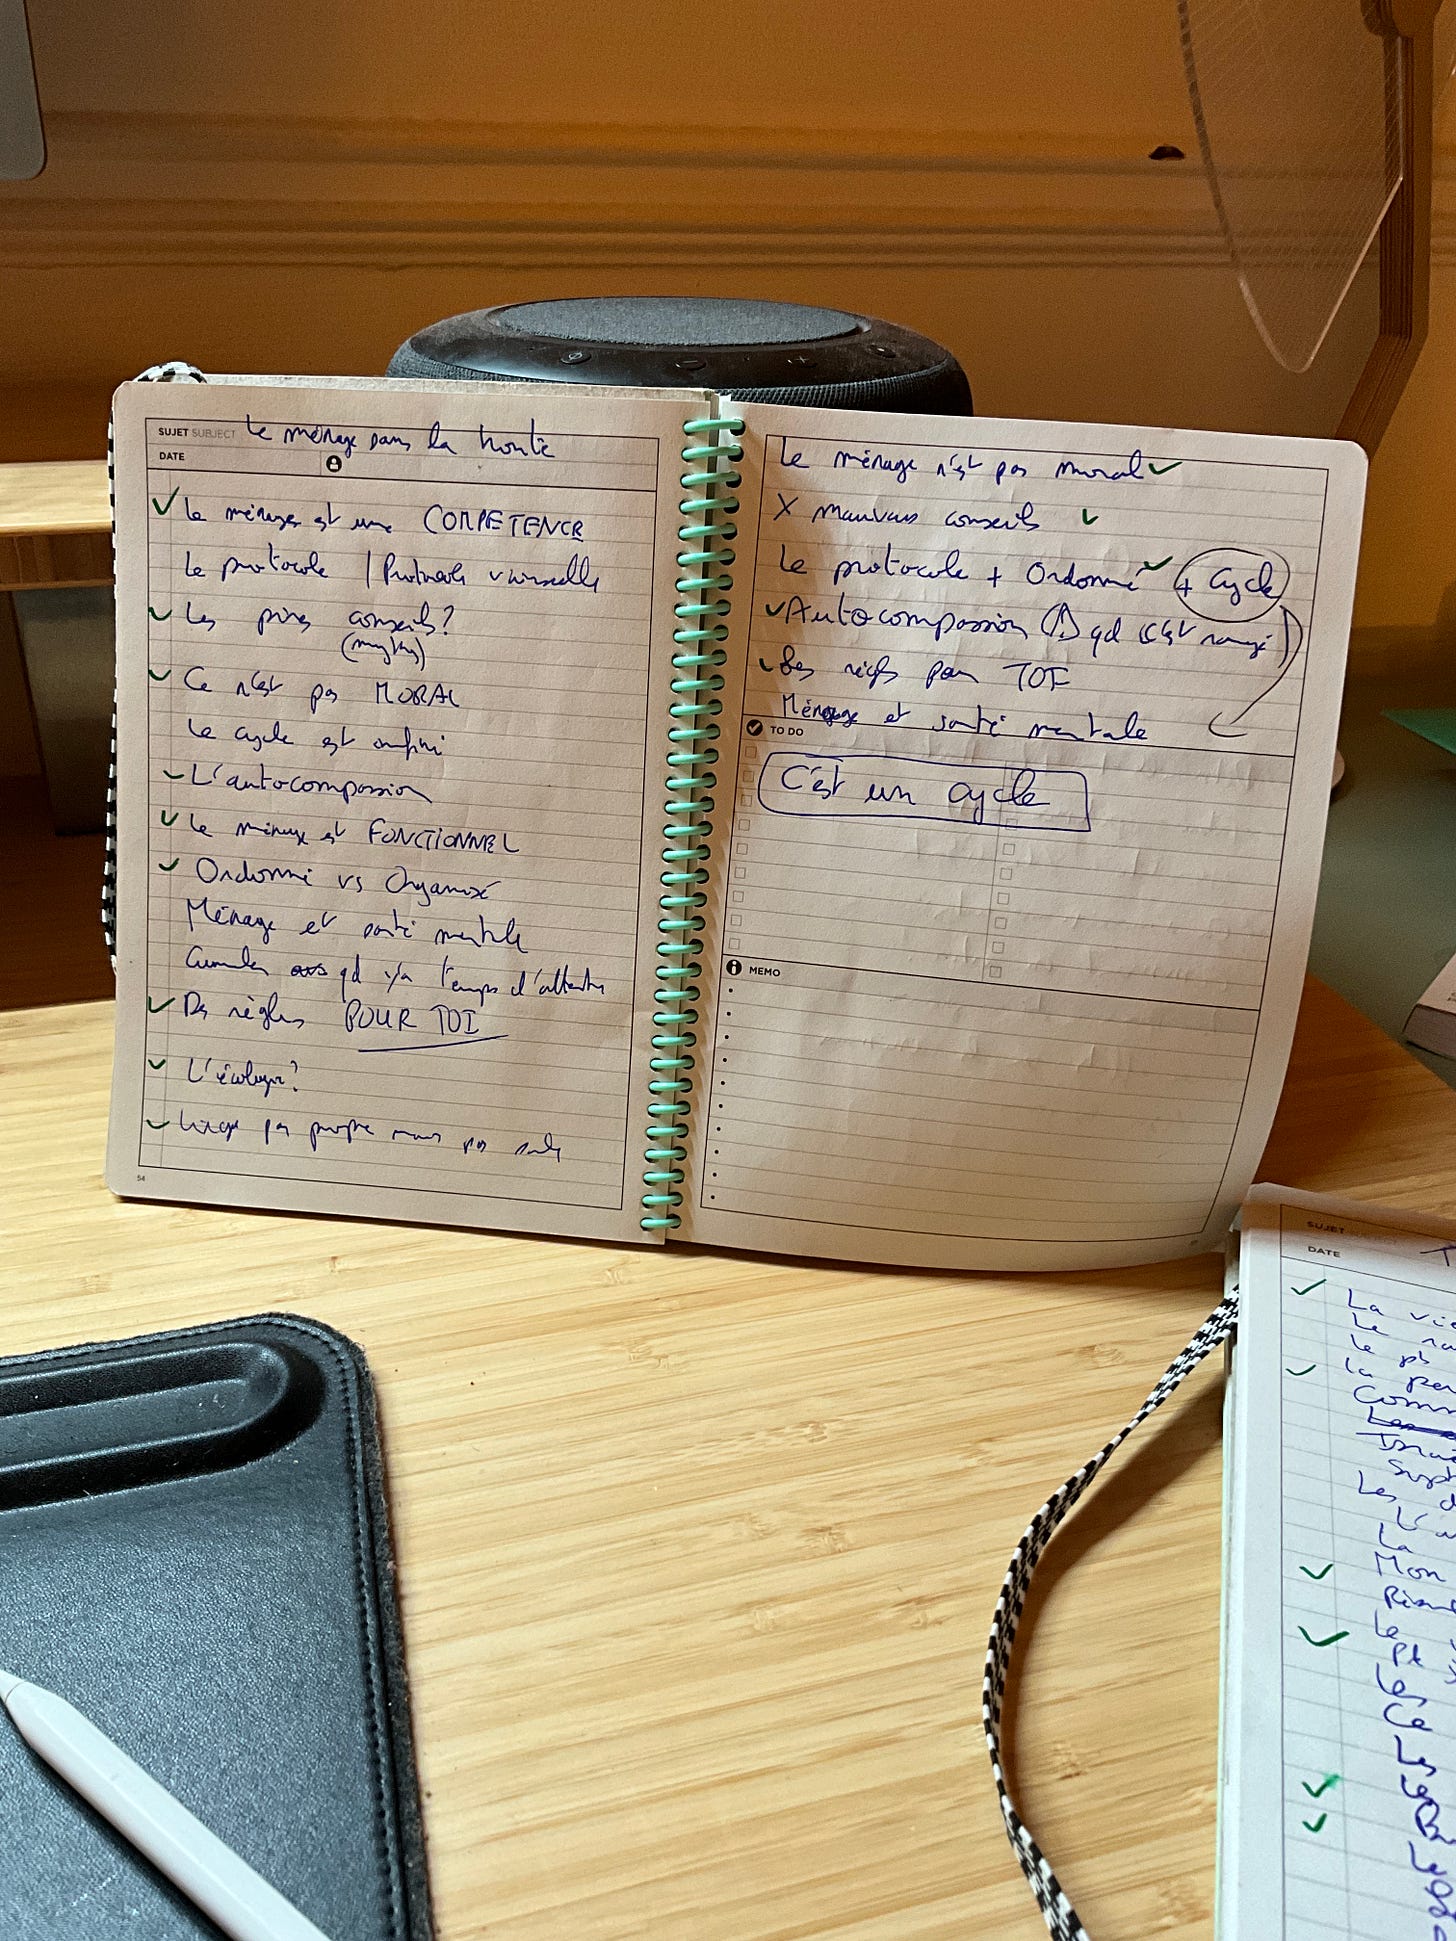 SUJET SUBJECT Le ménage sans la honte
DATE
Le ménage est une COMPETENCE
Le protocole | Protocole vaisselle
Les pires conseils?
Ce n'est pas MORAL
Le cycle est infini
L'autocompassion
Le ménage est FONCTIONNEL
Ordonné vs Organisé
Ménage et santé mentale
Cumuler qd y'a temps d'attente
Des règles POUR TOI
L'écologie?
Linge pas propre mais pas sale
54
Le ménage n'est pas moral
X mauvais conseils
Le protocole + Ordonné + Cycle
Autocompassion qd c'est rangé
Des règles pour TOI
Ménage et santé mentale
TO DO
C'est un cycle
MEMO
SUJET
DATE
La vie
Le
Le pb
La
Les
La
Mon
Le
Les
Ce
Les